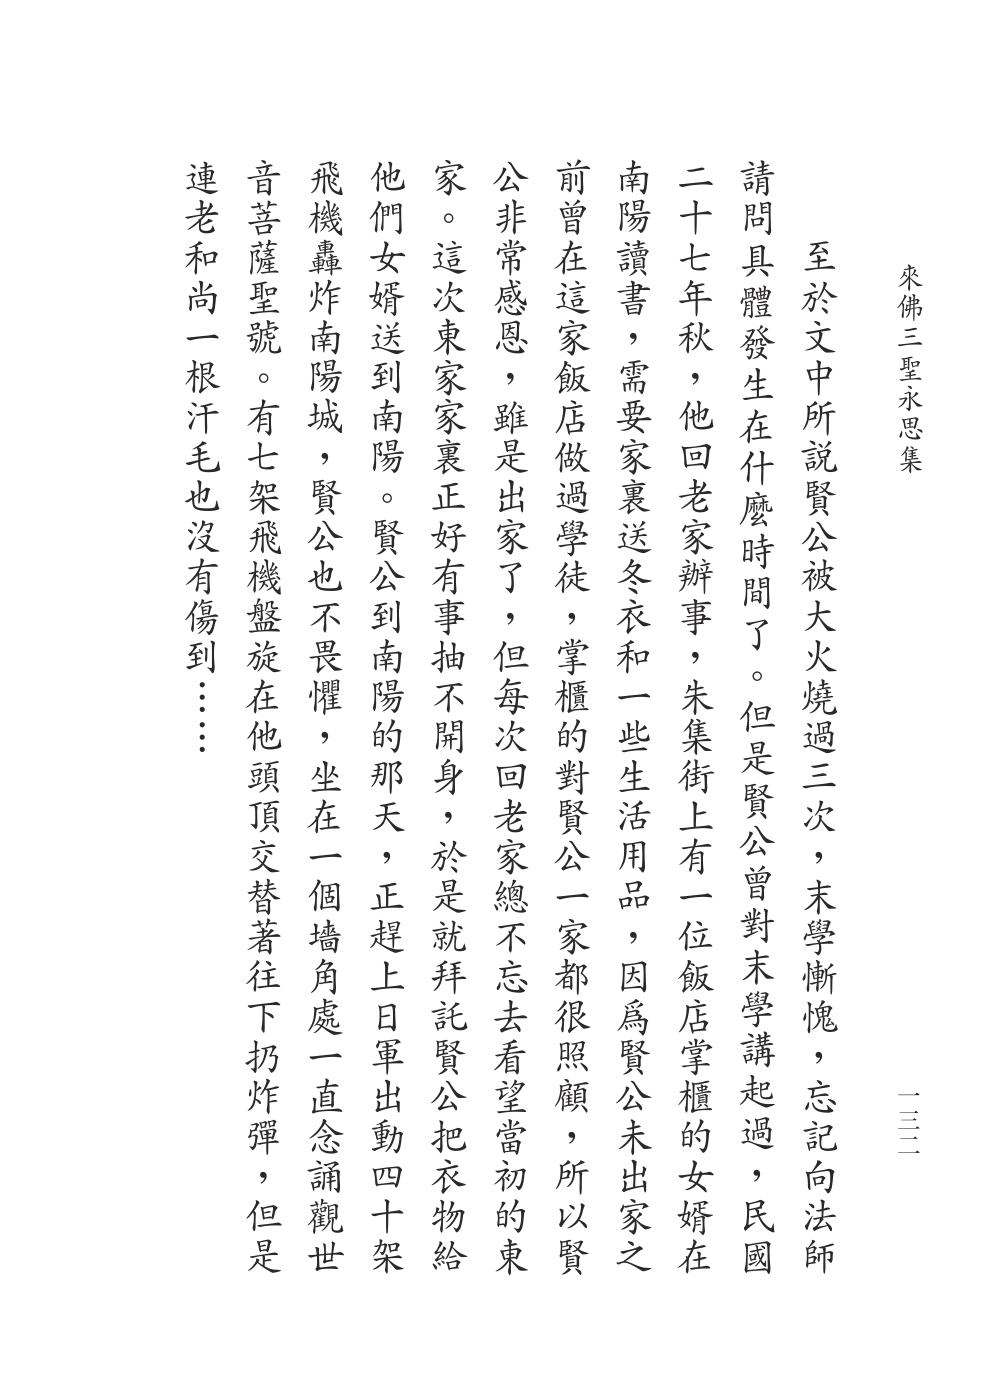 來佛三聖永思集
一三二
至於文中所説賢公被大火燒過三次，末學慚愧，忘記向法師
請問具體發生在什麼時間了。但是賢公曾對末學講起過，民國
二十七年秋，他回老家辦事，朱集街上有一位飯店掌櫃的女婿在
南陽讀書，需要家裏送冬衣和一些生活用品，因爲賢公未出家之
前曾在這家飯店做過學徒，掌櫃的對賢公一家都很照顧，所以賢
公非常感恩，雖是出家了，但每次回老家總不忘去看望當初的東
家。這次東家家裏正好有事抽不開身，於是就拜託賢公把衣物給
他們女婿送到南陽。賢公到南陽的那天，正趕上日軍出動四十架
飛機轟炸南陽城，賢公也不畏懼，坐在一個墻角處一直念誦觀世
音菩薩聖號。有七架飛機盤旋在他頭頂交替著往下扔炸彈，但是
連老和尚一根汗毛也沒有傷到……